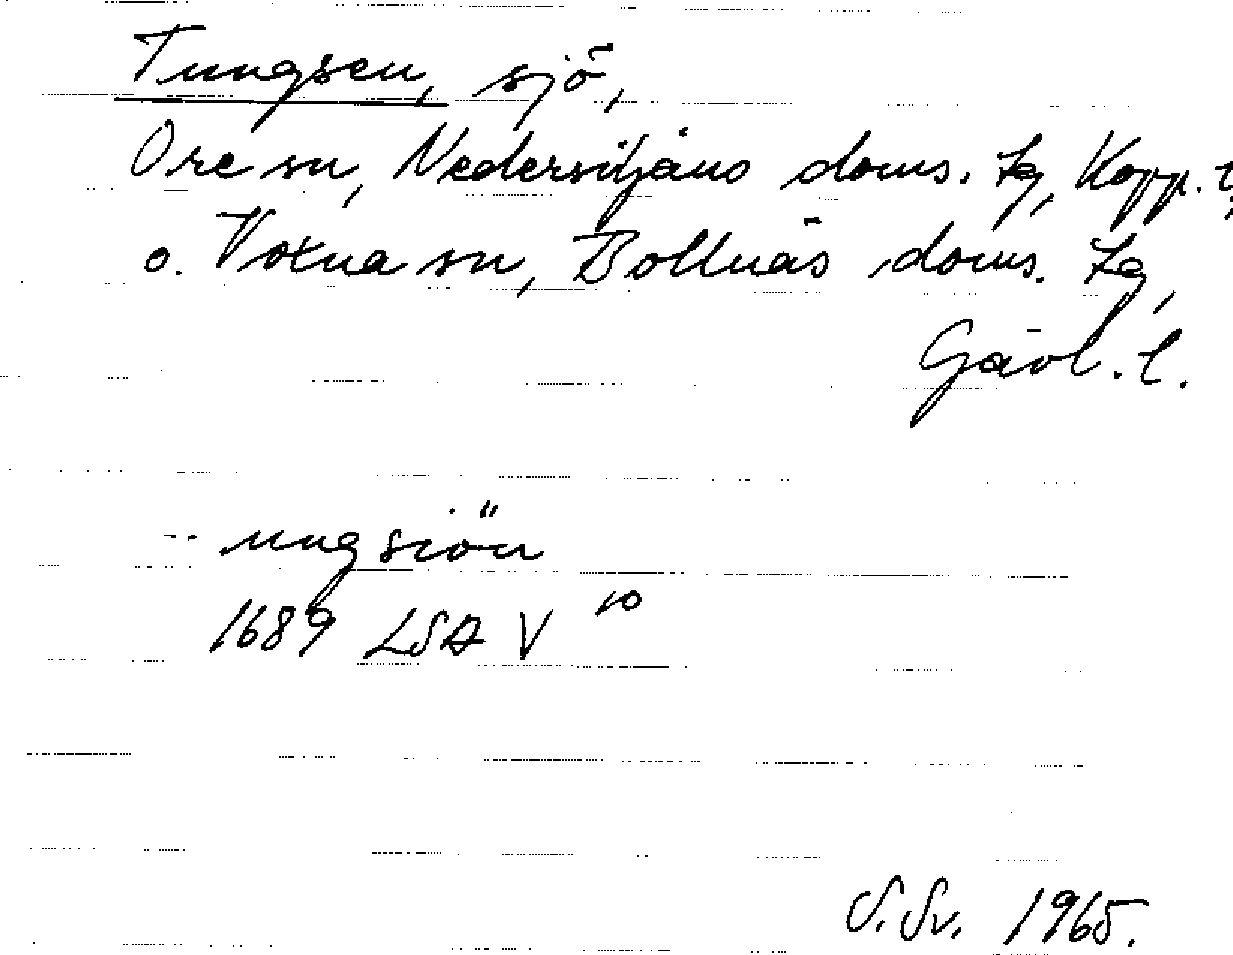 Tungsen, sjö,
Ore sn, Nedansiljans doms. tg, Kopp. l,
o. Voxna sn, Bollnäs doms. tg,
Gävl. l.
-- ungsiön
1689 LSA V 10
S. Sv. 1965.